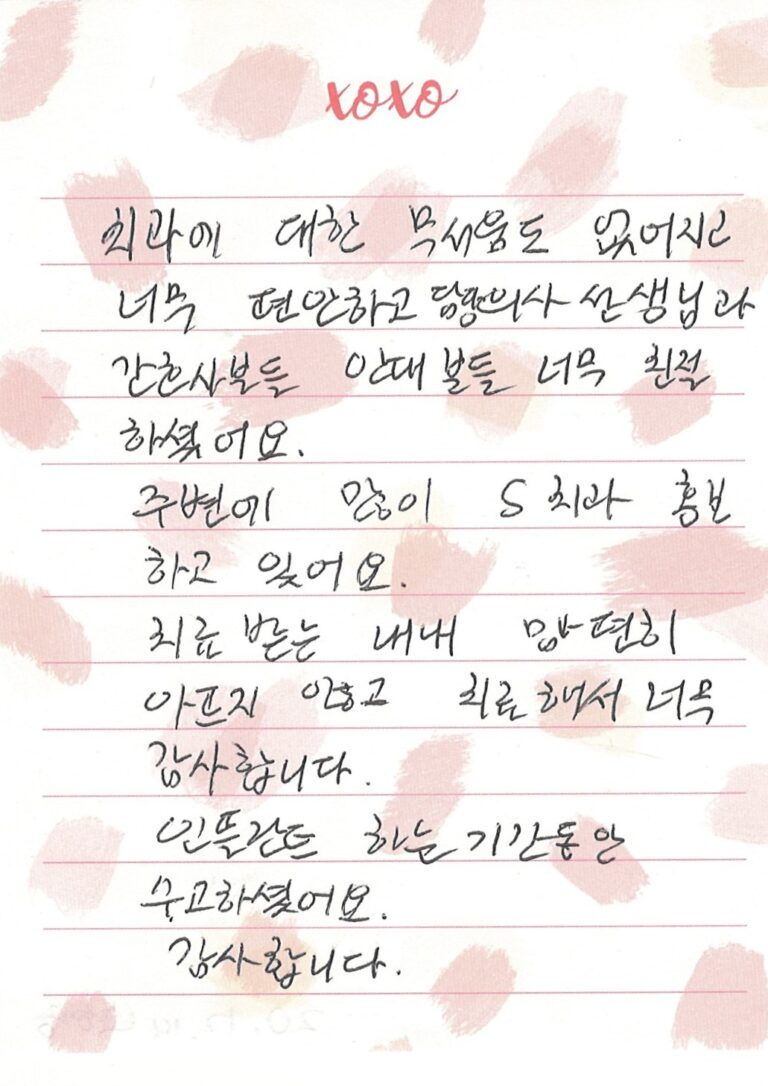 xoxo
치과에 대한 무서움도 없어지고
너무 편안하고 담당의사 선생님과
간호사분들 안내분들 너무 친절
하셨어요.
주변에 많이 S치과 홍보
하고 있어요.
치료 받는 내내 맘 편히
아프지 않고 치료해서 너무
감사합니다.
임플란트 하는 기간동안
수고하셨어요.
감사합니다.